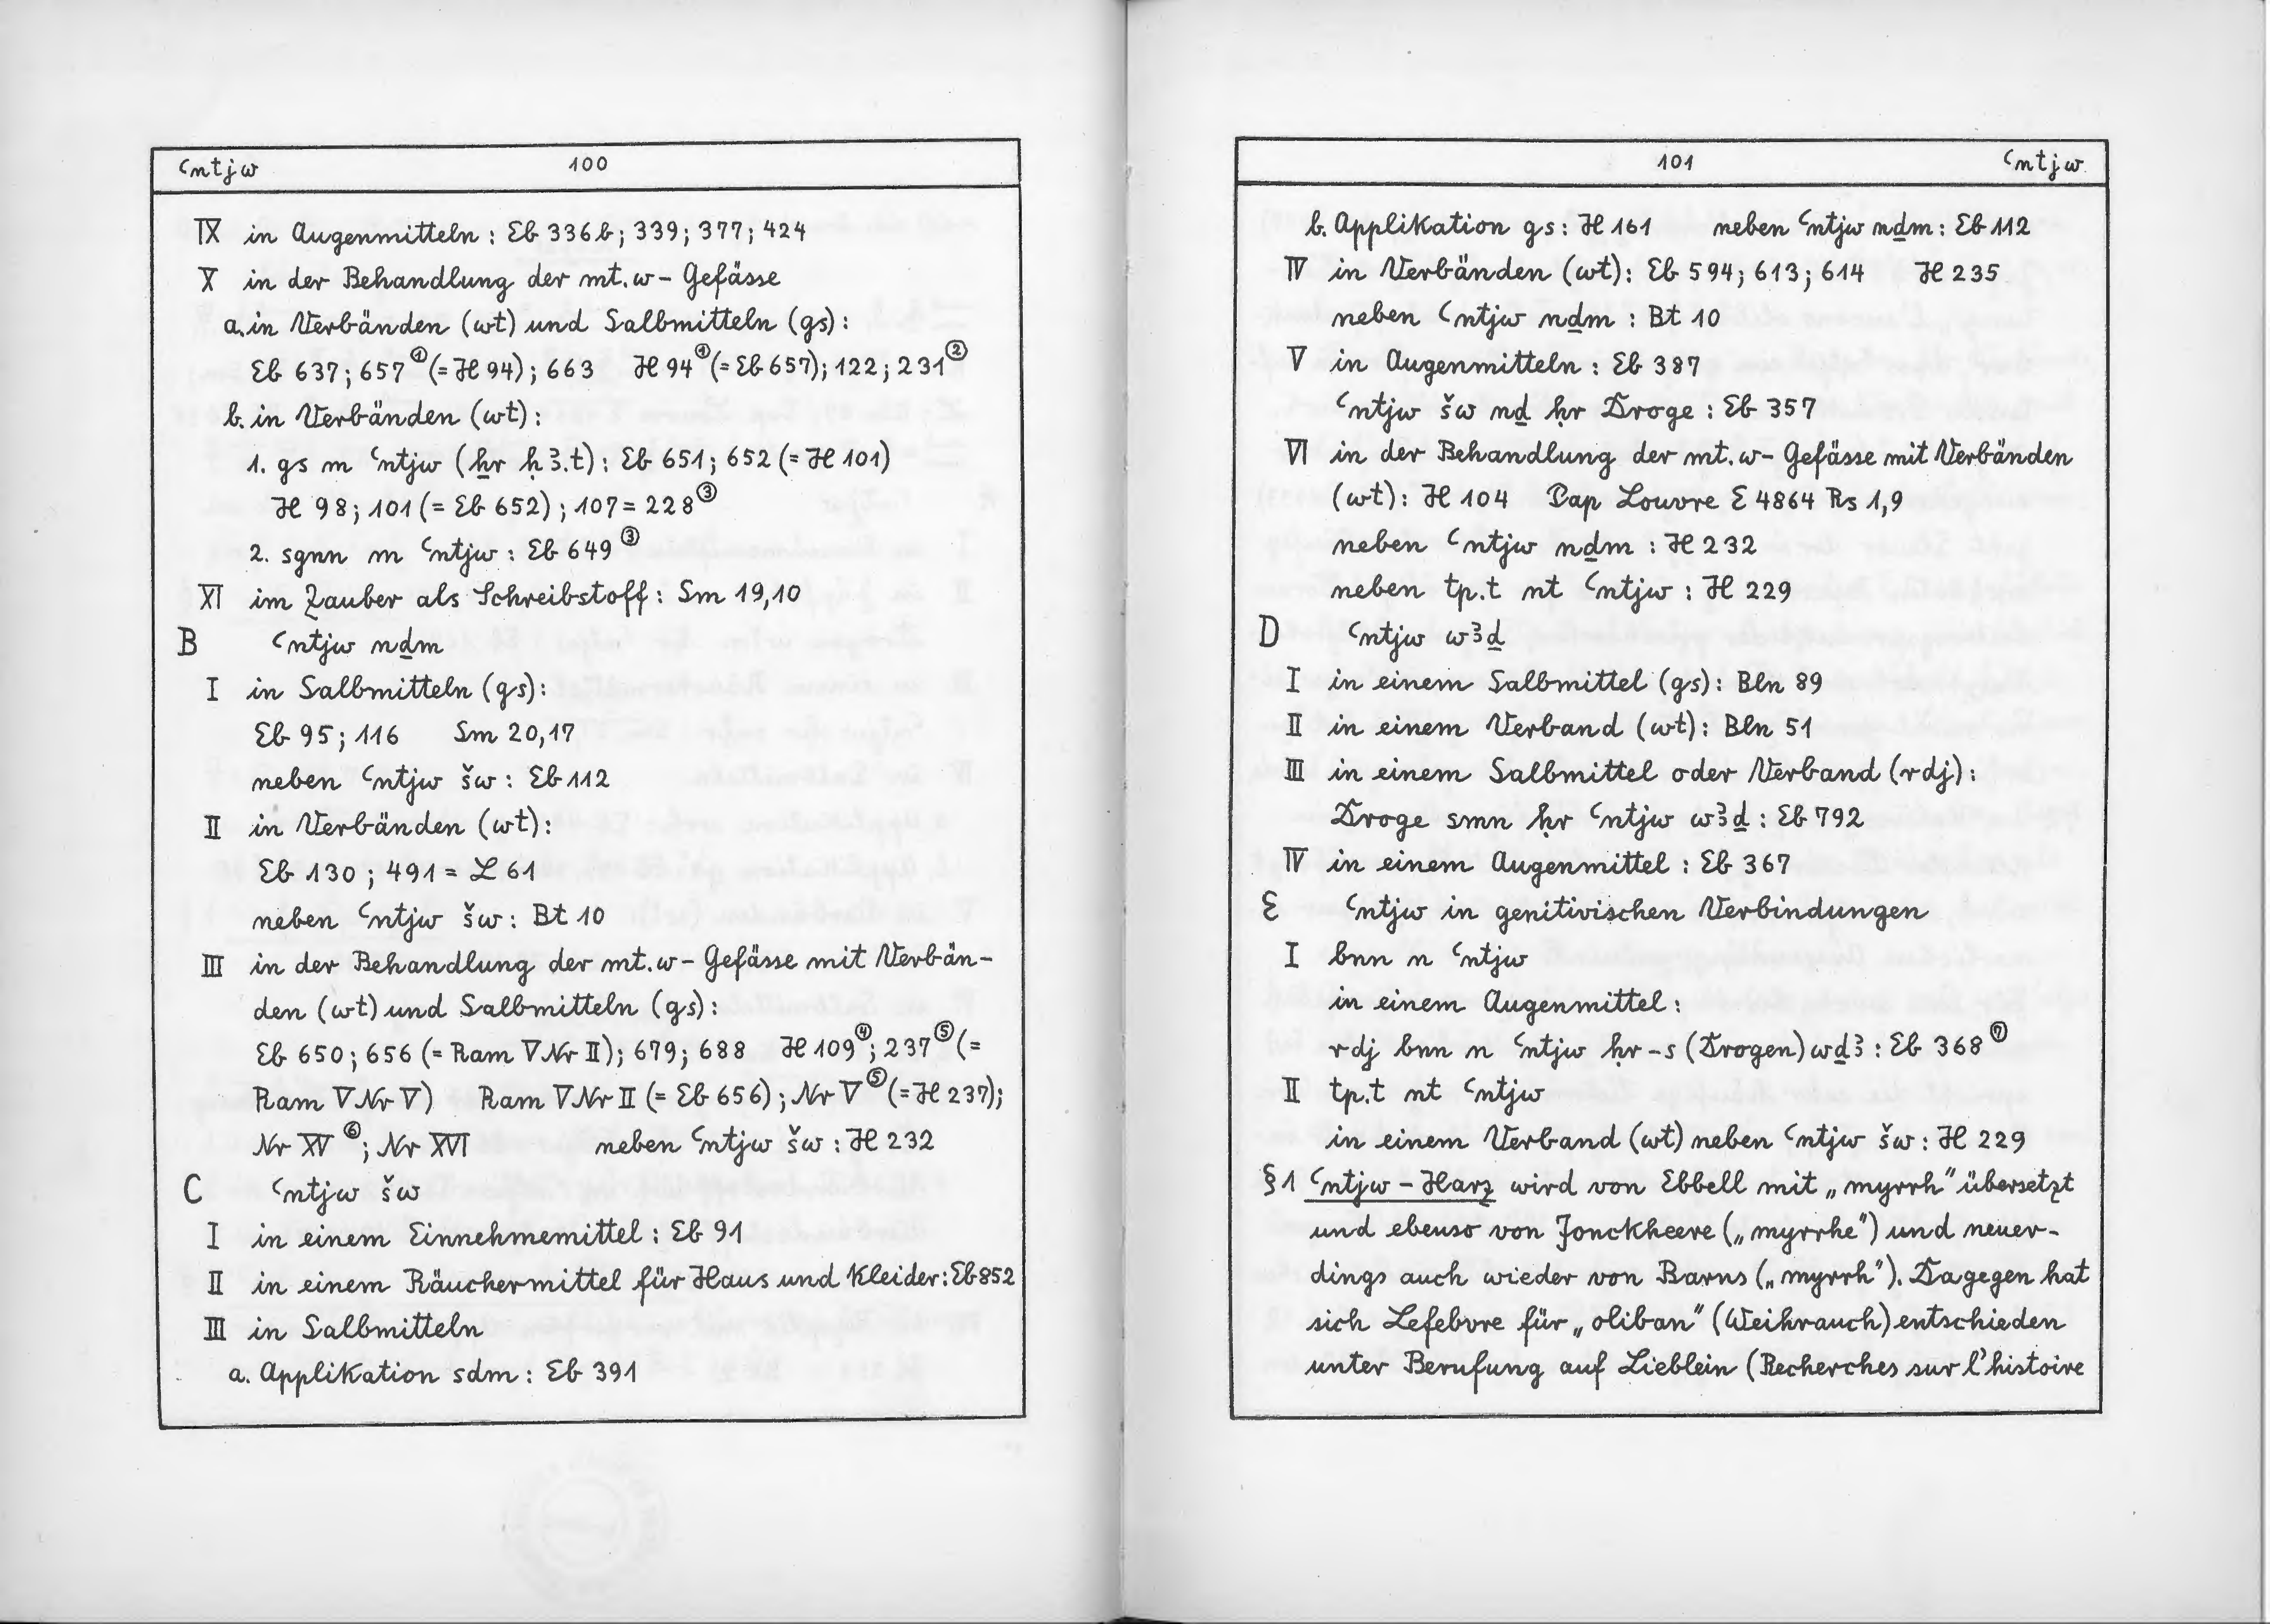 ꜥntjw 100
IX in Augenmitteln : Eb 336b; 339; 377; 424
X in der Behandlung der mt.w-Gefässe
a. in Verbänden (wt) und Salbmitteln (gs):
Eb 637; 657① (= H 94); 663 H 94① (= Eb 657); 122; 231②
b. in Verbänden (wt):
1. gs m ꜥntjw (ẖr ḥꜣ.t): Eb 651; 652 (= H 101)
H 98; 101 (= Eb 652); 107 = 228③
2. sgnn m ꜥntjw : Eb 649③
XI im Zauber als Schreibstoff: Sm 19,10
B ꜥntjw nḏm
I in Salbmitteln (gs):
Eb 95; 116 Sm 20,17
neben ꜥntjw šw : Eb 112
II in Verbänden (wt):
Eb 130; 491 = L 61
neben ꜥntjw šw : Bt 10
III in der Behandlung der mt.w-Gefässe mit Verbän-
den (wt) und Salbmitteln (gs):
Eb 650; 656 (= Ram V Nr II); 679; 688 H 109④; 237⑤ (=
Ram V Nr V) Ram V Nr II (= Eb 656); Nr V⑤ (= H 237);
Nr XV⑥; Nr XVI neben ꜥntjw šw : H 232
C ꜥntjw šw
I in einem Einnehmemittel : Eb 91
II in einem Räuchermittel für Haus und Kleider: Eb 852
III in Salbmitteln
a. Applikation sdm : Eb 391
101 ꜥntjw
b. Applikation gs : H 161 neben ꜥntjw nḏm : Eb 112
IV in Verbänden (wt): Eb 594; 613; 614 H 235
neben ꜥntjw nḏm : Bt 10
V in Augenmitteln : Eb 387
ꜥntjw šw nḏ ḥr Droge : Eb 357
VI in der Behandlung der mt.w-Gefässe mit Verbänden
(wt): H 104 Pap Louvre E 4864 Rs 1,9
neben ꜥntjw nḏm : H 232
neben tp.t nt ꜥntjw : H 229
D ꜥntjw wꜣḏ
I in einem Salbmittel (gs): Bln 89
II in einem Verband (wt): Bln 51
III in einem Salbmittel oder Verband (rdj):
Droge smn ḥr ꜥntjw wꜣḏ : Eb 792
IV in einem Augenmittel : Eb 367
E ꜥntjw in genitivischen Verbindungen
I bnn n ꜥntjw
in einem Augenmittel :
rdj bnn n ꜥntjw ḥr-s (Drogen) wḏꜣ : Eb 368⑦
II tp.t nt ꜥntjw
in einem Verband (wt) neben ꜥntjw šw : H 229
§1 ꜥntjw-Harz wird von Ebbell mit „myrrh" übersetzt
und ebenso von Jonckheere („myrrhe") und neuer-
dings auch wieder von Barns („myrrh"). Dagegen hat
sich Lefebvre für „oliban" (Weihrauch) entschieden
unter Berufung auf Lieblein (Recherches sur l'histoire